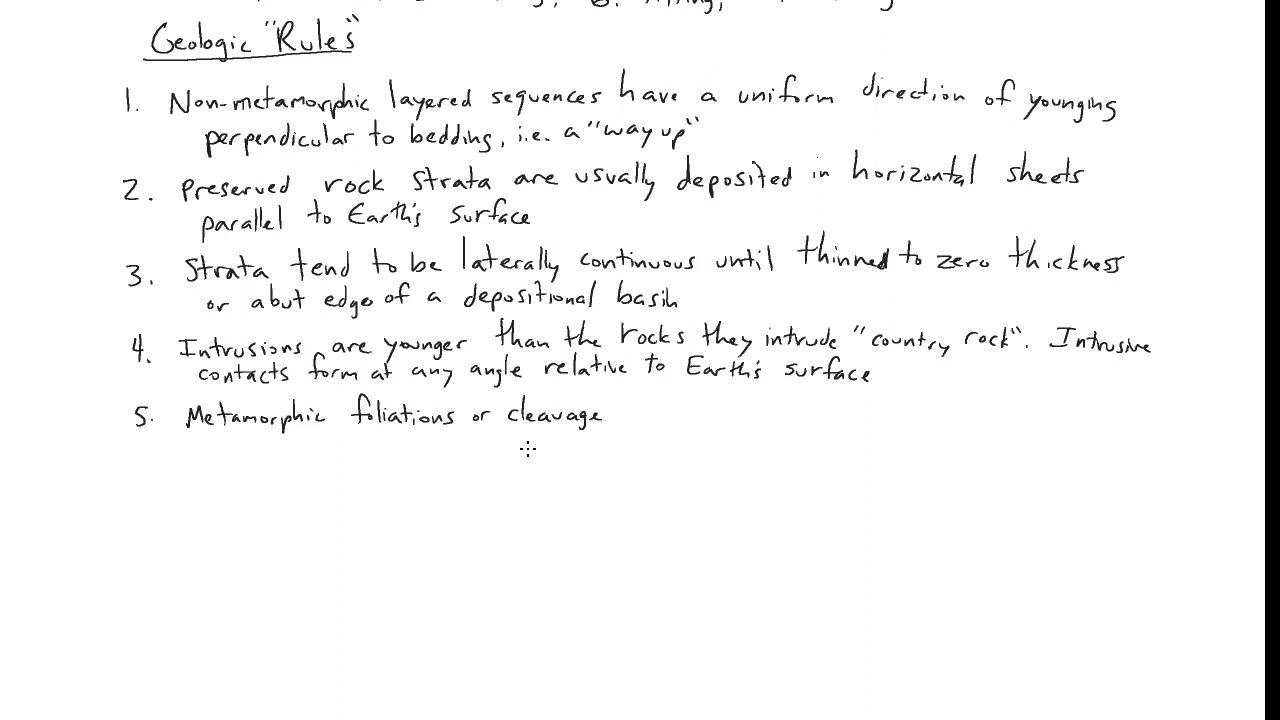 Geologic "Rules"
1. Non-metamorphic layered sequences have a uniform direction of younging
perpendicular to bedding, i.e. a "way up"
2. Preserved rock strata are usually deposited in horizontal sheets
parallel to Earth's surface
3. Strata tend to be laterally continuous until thinned to zero thickness
or abut edge of a depositional basin
4. Intrusions are younger than the rocks they intrude "country rock". Intrusive
contacts form at any angle relative to Earth's surface
5. Metamorphic foliations or cleavage